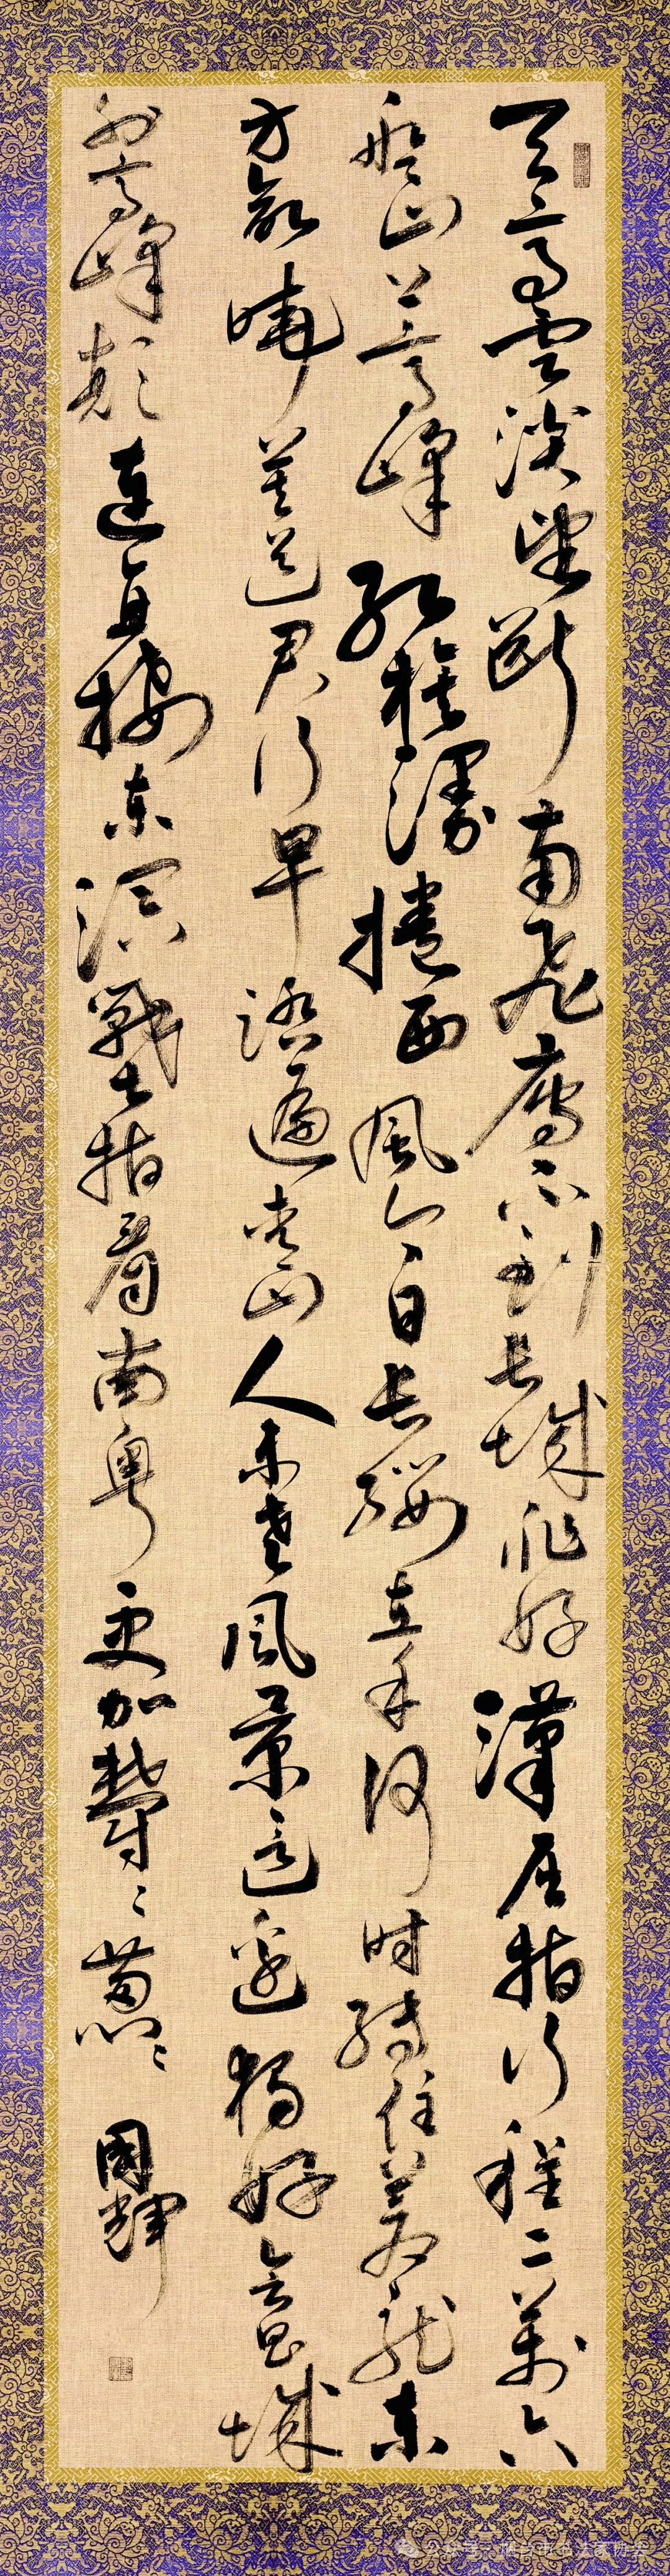 天高雲淡望斷南飛雁不到長城非好漢屈指行程二萬六
盤山上高峰紅旗漫捲西風今日長纓在手何時縛住蒼龍東
方欲曉莫道君行早踏遍青山人未老風景這邊獨好會昌城
外高峰顛連直接東溟戰士指看南粵更加鬱〻蔥〻 國輝
公众号